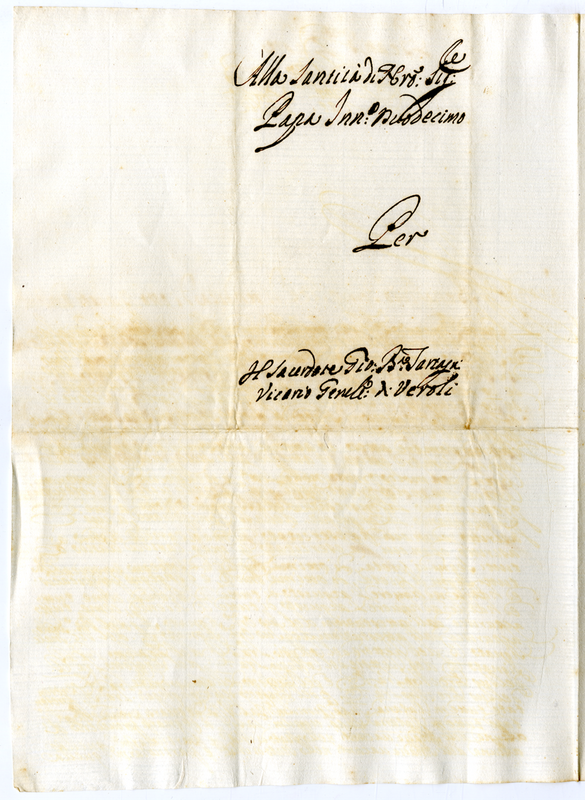 Alla Santità di Nro: Sig:re
Papa Inn:o Duodecimo
Per
Il Sacerdote Gio: B:ta
Vicario Genele: di Veroli